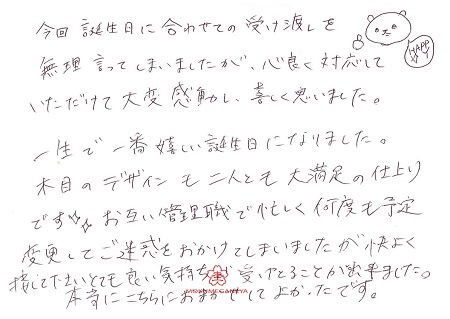 今回 誕生日に合わせての受け渡しを
HAPPY
無理言ってしまいましたが、心良く対応して
いただけて大変感動し、喜しく思いました。
一生で一番嬉しい誕生日になりました。
木目のデザインも二人とも大満足の仕上り
です☆☆ お互い管理職で忙しく何度も予定
変更してご迷惑をおかけしてしまいましたが快よく
接して下さいとても良い気持ちで受けとることが出来ました。
MOKUMEGANEYA
本当にこちらにおまかせしてよかったです。